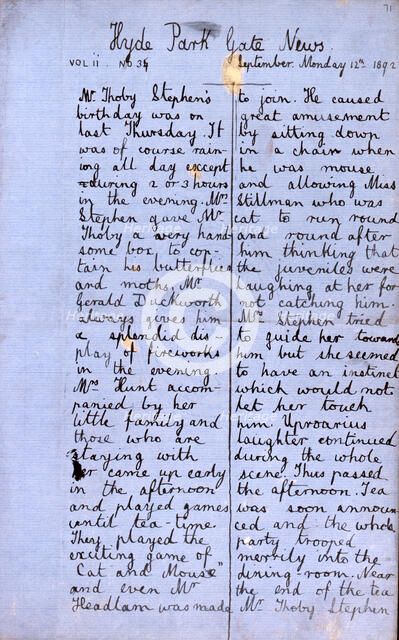 71
Hyde Park Gate News.
VOL ii. No 34 September. Monday 12th 1892
Mr Thoby Stephen's
birthday was on
last Thursday. It
was of course rain-
ing all day except
during 2 or 3 hours
in the evening. Mrs
Stephen gave Mr
Thoby a very hand
some box to con-
tain his butterflies
and moths. Mr
Gerald Duckworth
always gives him
a splendid dis-
play of fireworks
in the evening.
Mrs Hunt accom-
panied by her
little family and
those who are
staying with
her came up early
in the afternoon
and played games
until tea-time.
They played the
exciting game of
"Cat and Mouse"
and even Mr
Headlam was made
to join. He caused
great amusement
by sitting down
in a chair when
he was mouse
and allowing Miss
Stillman who was
cat to run round
and round after
him thinking that
the juveniles were
laughing at her for
not catching him.
Mrs Stephen tried
to guide her toward
him but she seemed
to have an instinct
which would not
let her touch
him. Uproarius
laughter continued
during the whole
scene. Thus passed
the afternoon. Tea
was soon announ
ced and the whole
party trooped
merrily into the
dining-room. Near
the end of the tea
Mr Thoby Stephen